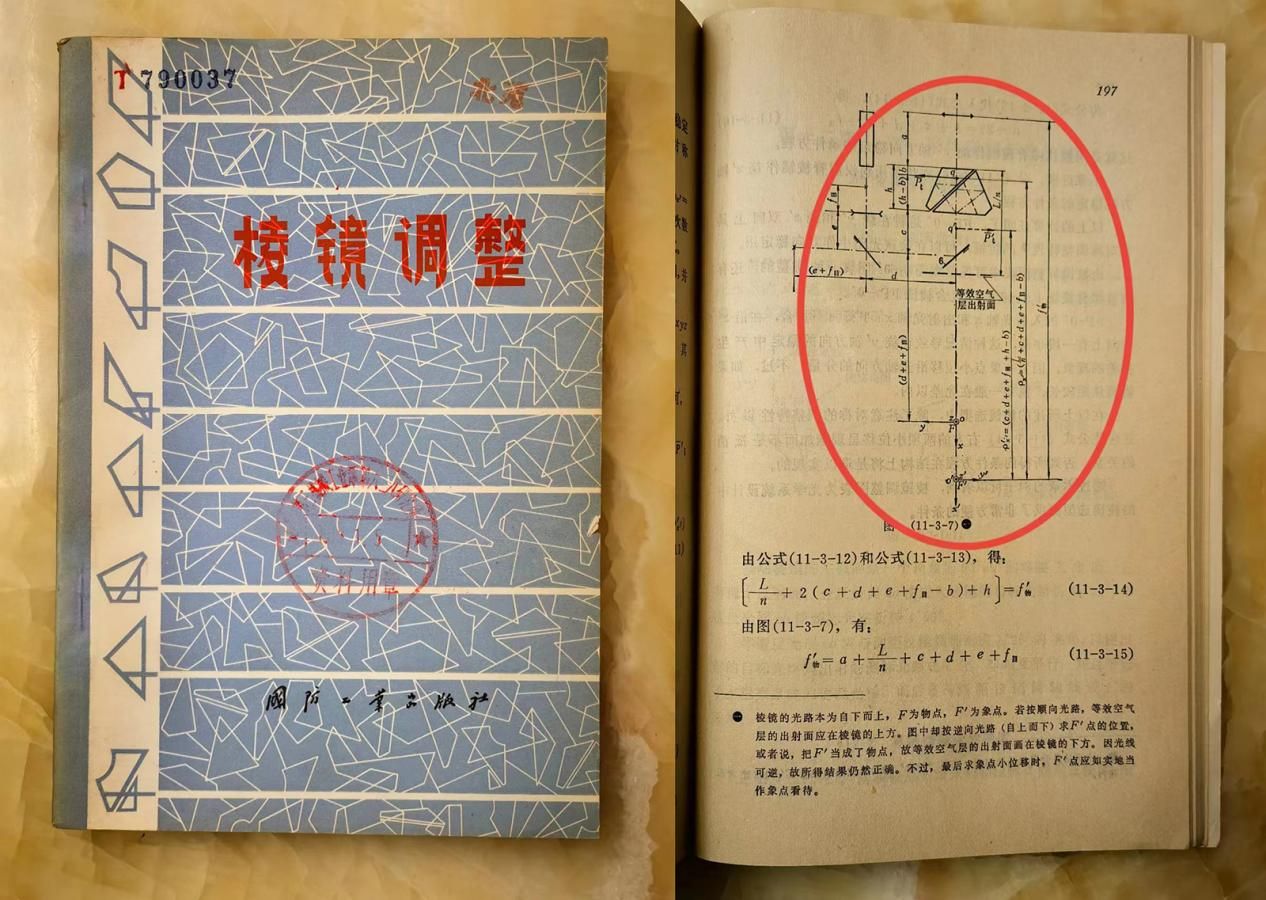 T 790037
棱镜调整
资料用章
國防工業出版社
197
等效空气
层出射面
(e+fⅡ)
d
(d+e+fⅡ)
f′物
图 (11-3-7)
由公式(11-3-12)和公式(11-3-13)，得：
[L/n+2(c+d+e+fⅡ-b)+h]=f′物 (11-3-14)
由图(11-3-7)，有：
f′物=a+L/n+c+d+e+fⅡ (11-3-15)
棱镜的光路本为自下而上，F为物点，F′为象点。若按顺向光路，等效空气
层的出射面应在棱镜的上方。图中却按逆向光路（自上而下）求F′点的位置，
或者说，把F′当成了物点，故等效空气层的出射面画在棱镜的下方。因光线
可逆，故所得结果仍然正确。不过，最后求象点小位移时，F′点应如实地当
作象点看待。